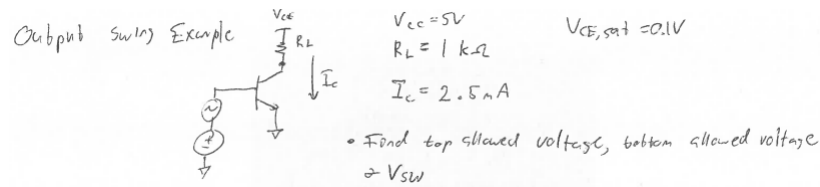 Output swing Example
VCE
RL
Ic
Vcc = 5V
RL = 1 kΩ
Ic = 2.5mA
VCE,sat = 0.1V
• Find top allowed voltage, bottom allowed voltage
& Vsw